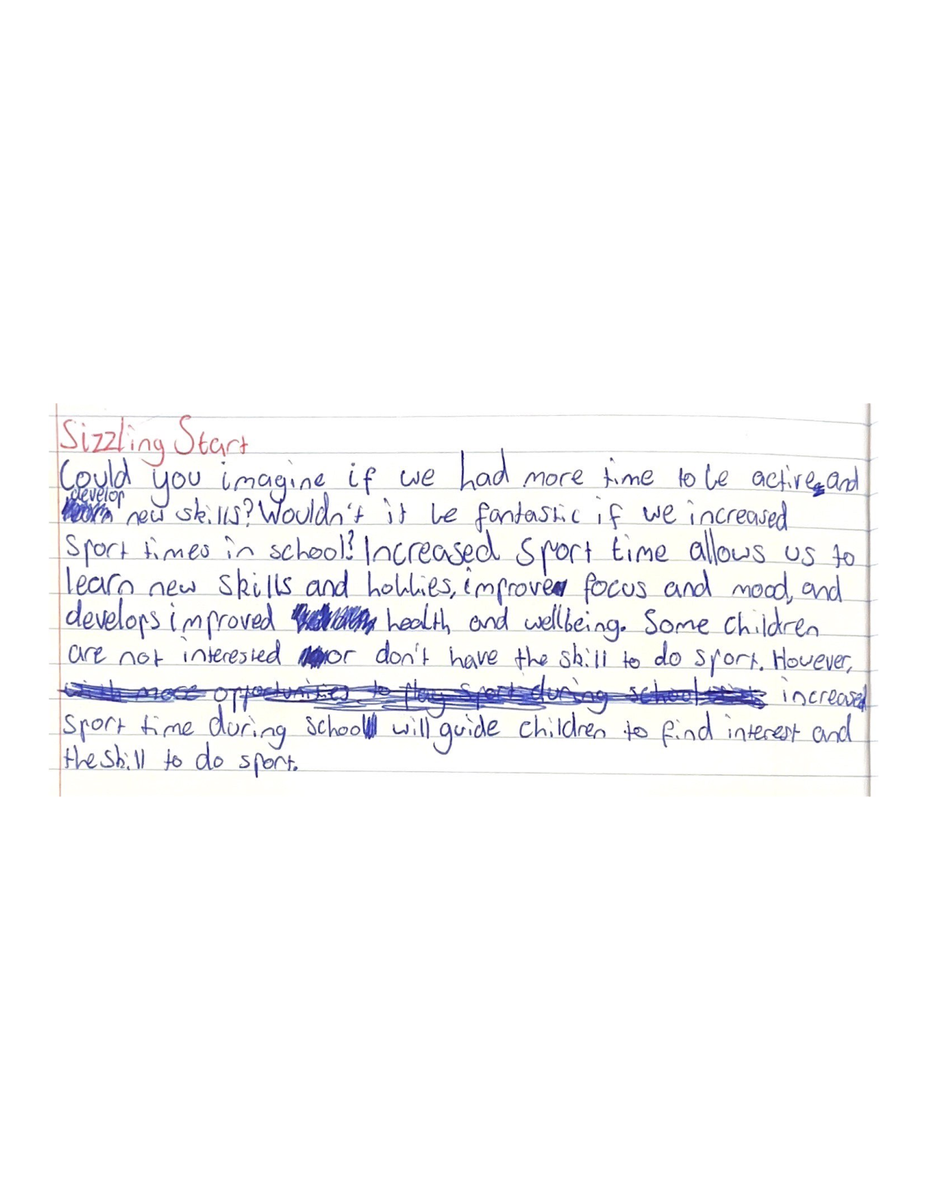 Sizzling Start
Could you imagine if we had more time to be active and
develop
new skills? Wouldn't it be fantastic if we increased
sport times in school? Increased sport time allows us to
learn new skills and hobbies, improve focus and mood, and
develops improved health and wellbeing. Some children
are not interested or don't have the skill to do sport. However,
with more opportunities to play sport during school increased
sport time during school will guide children to find interest and
the skill to do sport.